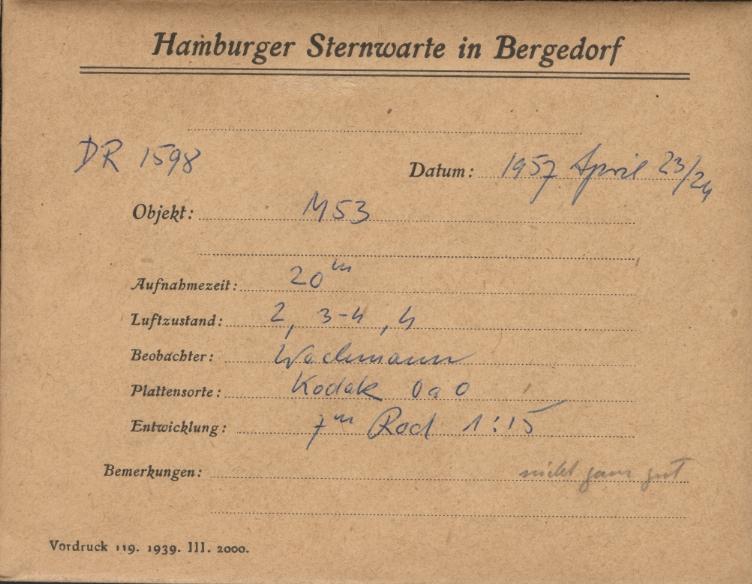 Hamburger Sternwarte in Bergedorf
DR 1598
Datum: 1957 April 23/24
Objekt: M53
Aufnahmezeit: 20ᵐ
Luftzustand: 2, 3-4, 4
Beobachter: Wachmann
Plattensorte: Kodak 0a0
Entwicklung: 7ᵐ Rod 1:15
Bemerkungen: nicht ganz gut
Vordruck 119. 1939. III. 2000.